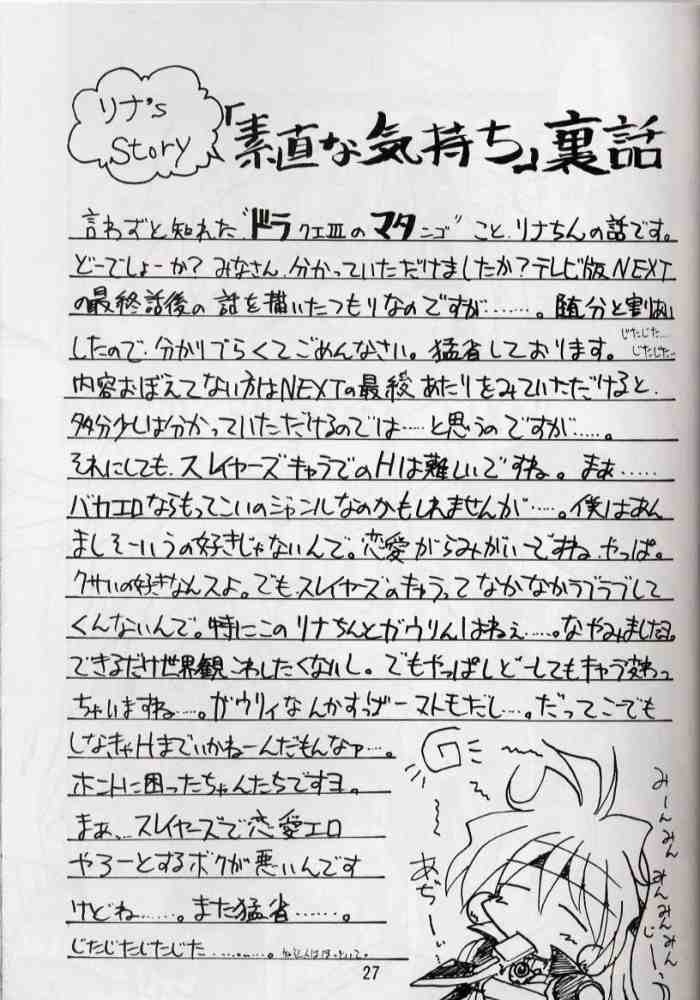 リナ's
Story
「素直な気持ち」裏話
言わずと知れた“ドラクエⅢのマタンゴ”こと、リナちんの話です。
どーでしょーか?みなさん、分かっていただけましたか?テレビ版NEXT
の最終話後の話を描いたつもりなのですが……。随分と割あい
したので、分かりづらくてごめんなさい。猛省しております。
じたじた…
じたじた…
内容おぼえてない方はNEXTの最終あたりをみていただけると、
多分少しは分かっていただけるのでは……と思うのですが……。
それにしても、スレイヤーズキャラでのHは難しいですね。まぁ……
バカエロならもってこいのジャンルなのかもしれませんが……。僕はあん
ましそーいうの好きじゃないんで。恋愛がらみがいーですね、やっぱ。
クサいの好きなんスよ。でも、スレイヤーズのキャラってなかなかラブラブして
くんないんで。特にこのリナちんとガウリんはねぇ……。なやみましたヨ。
できるだけ世界観こわしたくないし。でもやっぱしどーしてもキャラ変わっ
ちゃいますね……。ガウリイなんかすっげーマトモだし…。だってこーでも
しなきゃHまでいかねーんだもんなァ…。
ホントに困ったちゃんたちですヨ。
まぁ、スレイヤーズで恋愛エロ
やろーとするボクが悪いんです
けどね……。また猛省……。
じたじたじたじた………。
あぢーいぃ
みーんみん
みんみんみん
じーっ
27